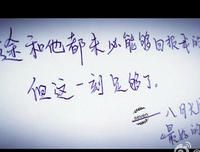 途和他都未必能够回报我的
但这一刻足够了。
seven
八月
最好的